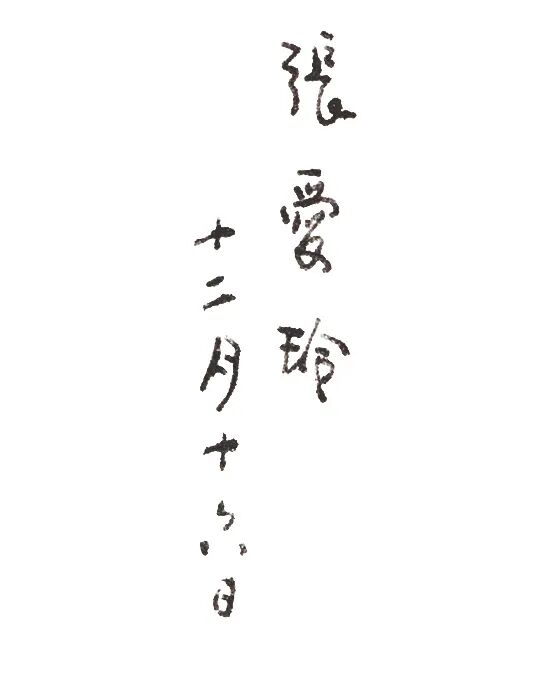 張愛玲
十二月十六日